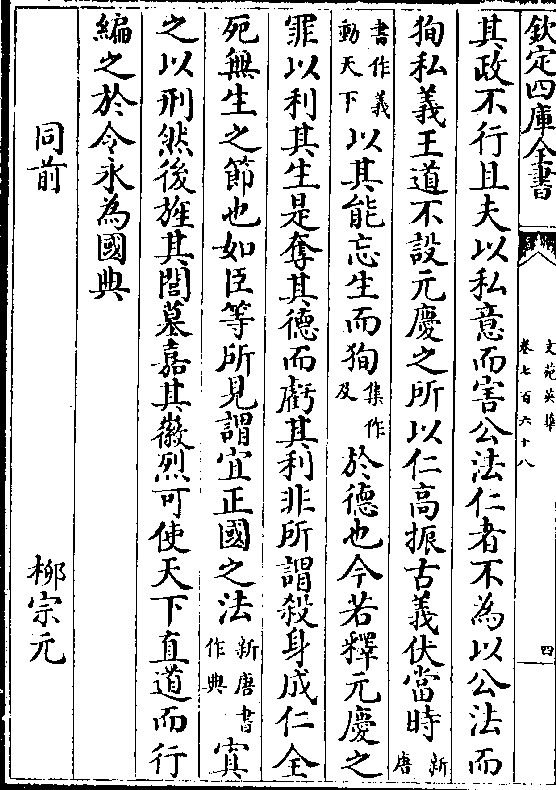 欽定四庫全書
文苑英華
卷七百六十八
四
其政不行且夫以私意而害公法仁者不為以公法而
狥私義王道不設元慶之所以仁高振古義伏當時新唐
書作義動天下以其能忘生而狥集作及於德也今若釋元慶之
罪以利其生是奪其德而虧其利非所謂殺身成仁全
死無生之節也如臣等所見謂宜正國之法新唐書作典寘
之以刑然後旌其閭墓嘉其徽烈可使天下直道而行
編之於令永為國典
同前
柳宗元